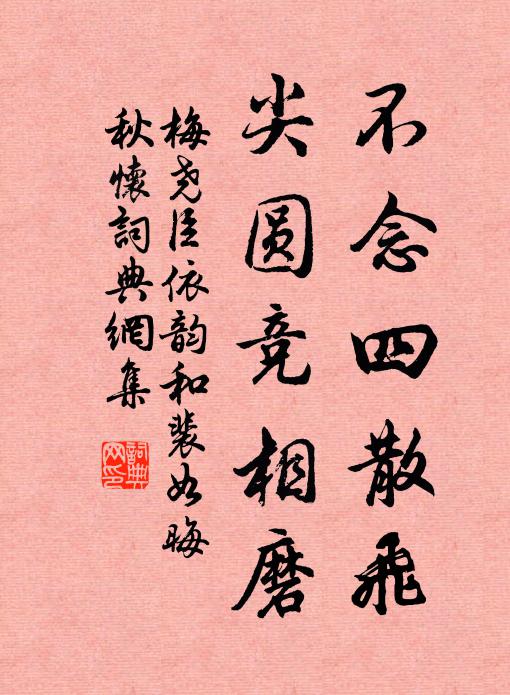 不念四散飛
尖圆竞相磨
梅尧臣依韵和裴如晦
秋懷詞典網集
詞典
网印